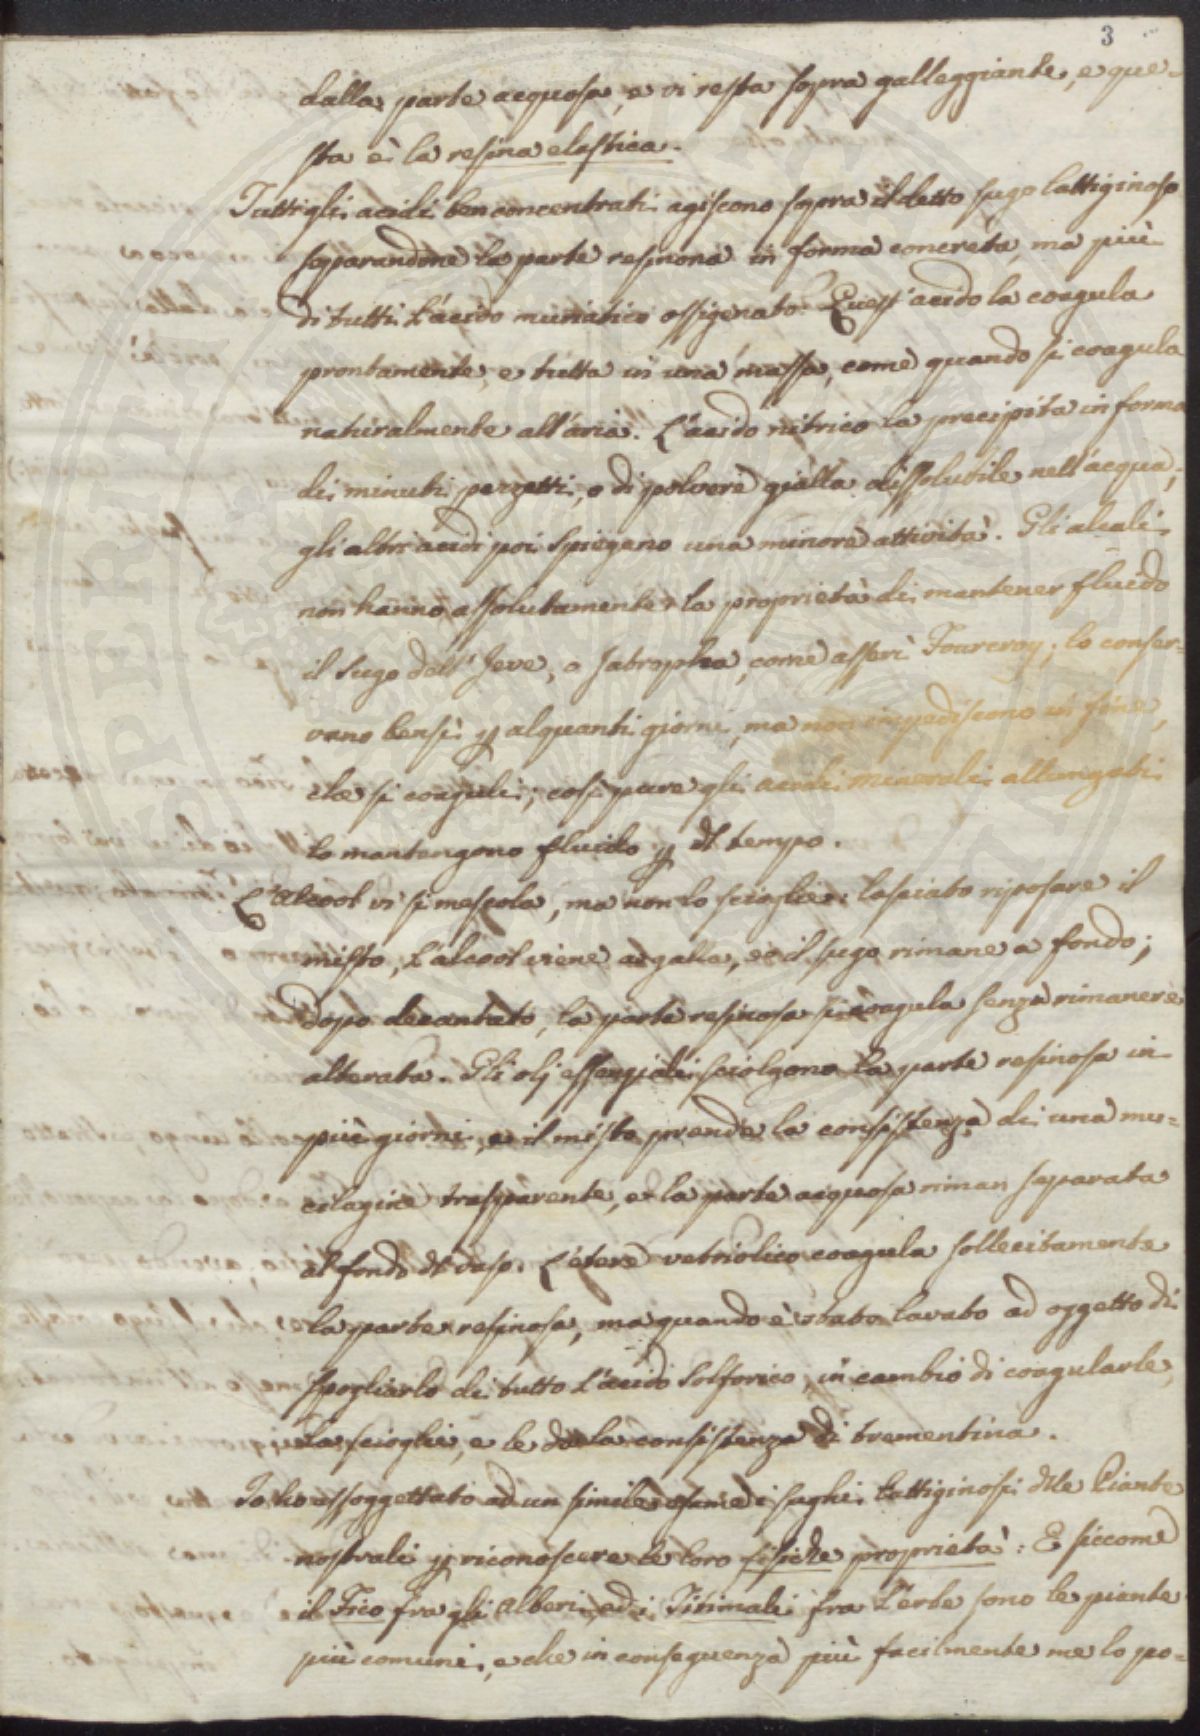 3
dalla parte acquosa, e vi resta sopra galleggiante, e que-
sta è la resina elastica.
Tutti gli acidi ben concentrati agiscono sopra il detto sugo lattiginoso
separandone la parte resinosa in forma concreta, ma più
di tutti l'acido muriatico ossigenato. Quest'acido la coagula
prontamente, e tutta in una massa, come quando si coagula
naturalmente all'aria. L'acido nitrico la precipita in forma
di minuti pezzetti, o di polvere gialla dissolubile nell'acqua;
gli altri acidi poi spiegano una minore attività. Gli alcali
non hanno assolutamente la proprietà di mantener fluido
il sugo dell'Jeve, o Jatropha, come asserì Fourcroy; lo conser-
vano bensì p alquanti giorni, ma non impediscono in fine,
che si coaguli; così pure gli acidi minerali allungati
lo mantengono fluido p dl tempo.
L'alcool vi si mescola, ma non lo scioglie: lasciato riposare il
misto, l'alcool viene a galla, e il sugo rimane a fondo;
Dopo decantato, la parte resinosa si coagula senza rimanere
alterata. Gli olj essenziali sciolgono la parte resinosa in
più giorni, e il misto prende la consistenza di una mu-
cilagine trasparente, e la parte acquosa riman separata
al fondo dl vaso. L'etere vetriolico coagula sollecitamente
la parte resinosa, ma quando è stato lavato ad oggetto di
spogliarlo di tutto l'acido solforico, in cambio di coagularle,
la scioglie, e le dà la consistenza di trementina.
Io ho assoggettato ad un simile esame i sughi lattiginosi dlle Piante
nostrali p riconoscere le loro fisiche proprietà: E siccome
il Fico fra gli alberi, ed i Titimali fra l'erbe sono le piante
più comuni, e che in conseguenza più facilmente me lo po-